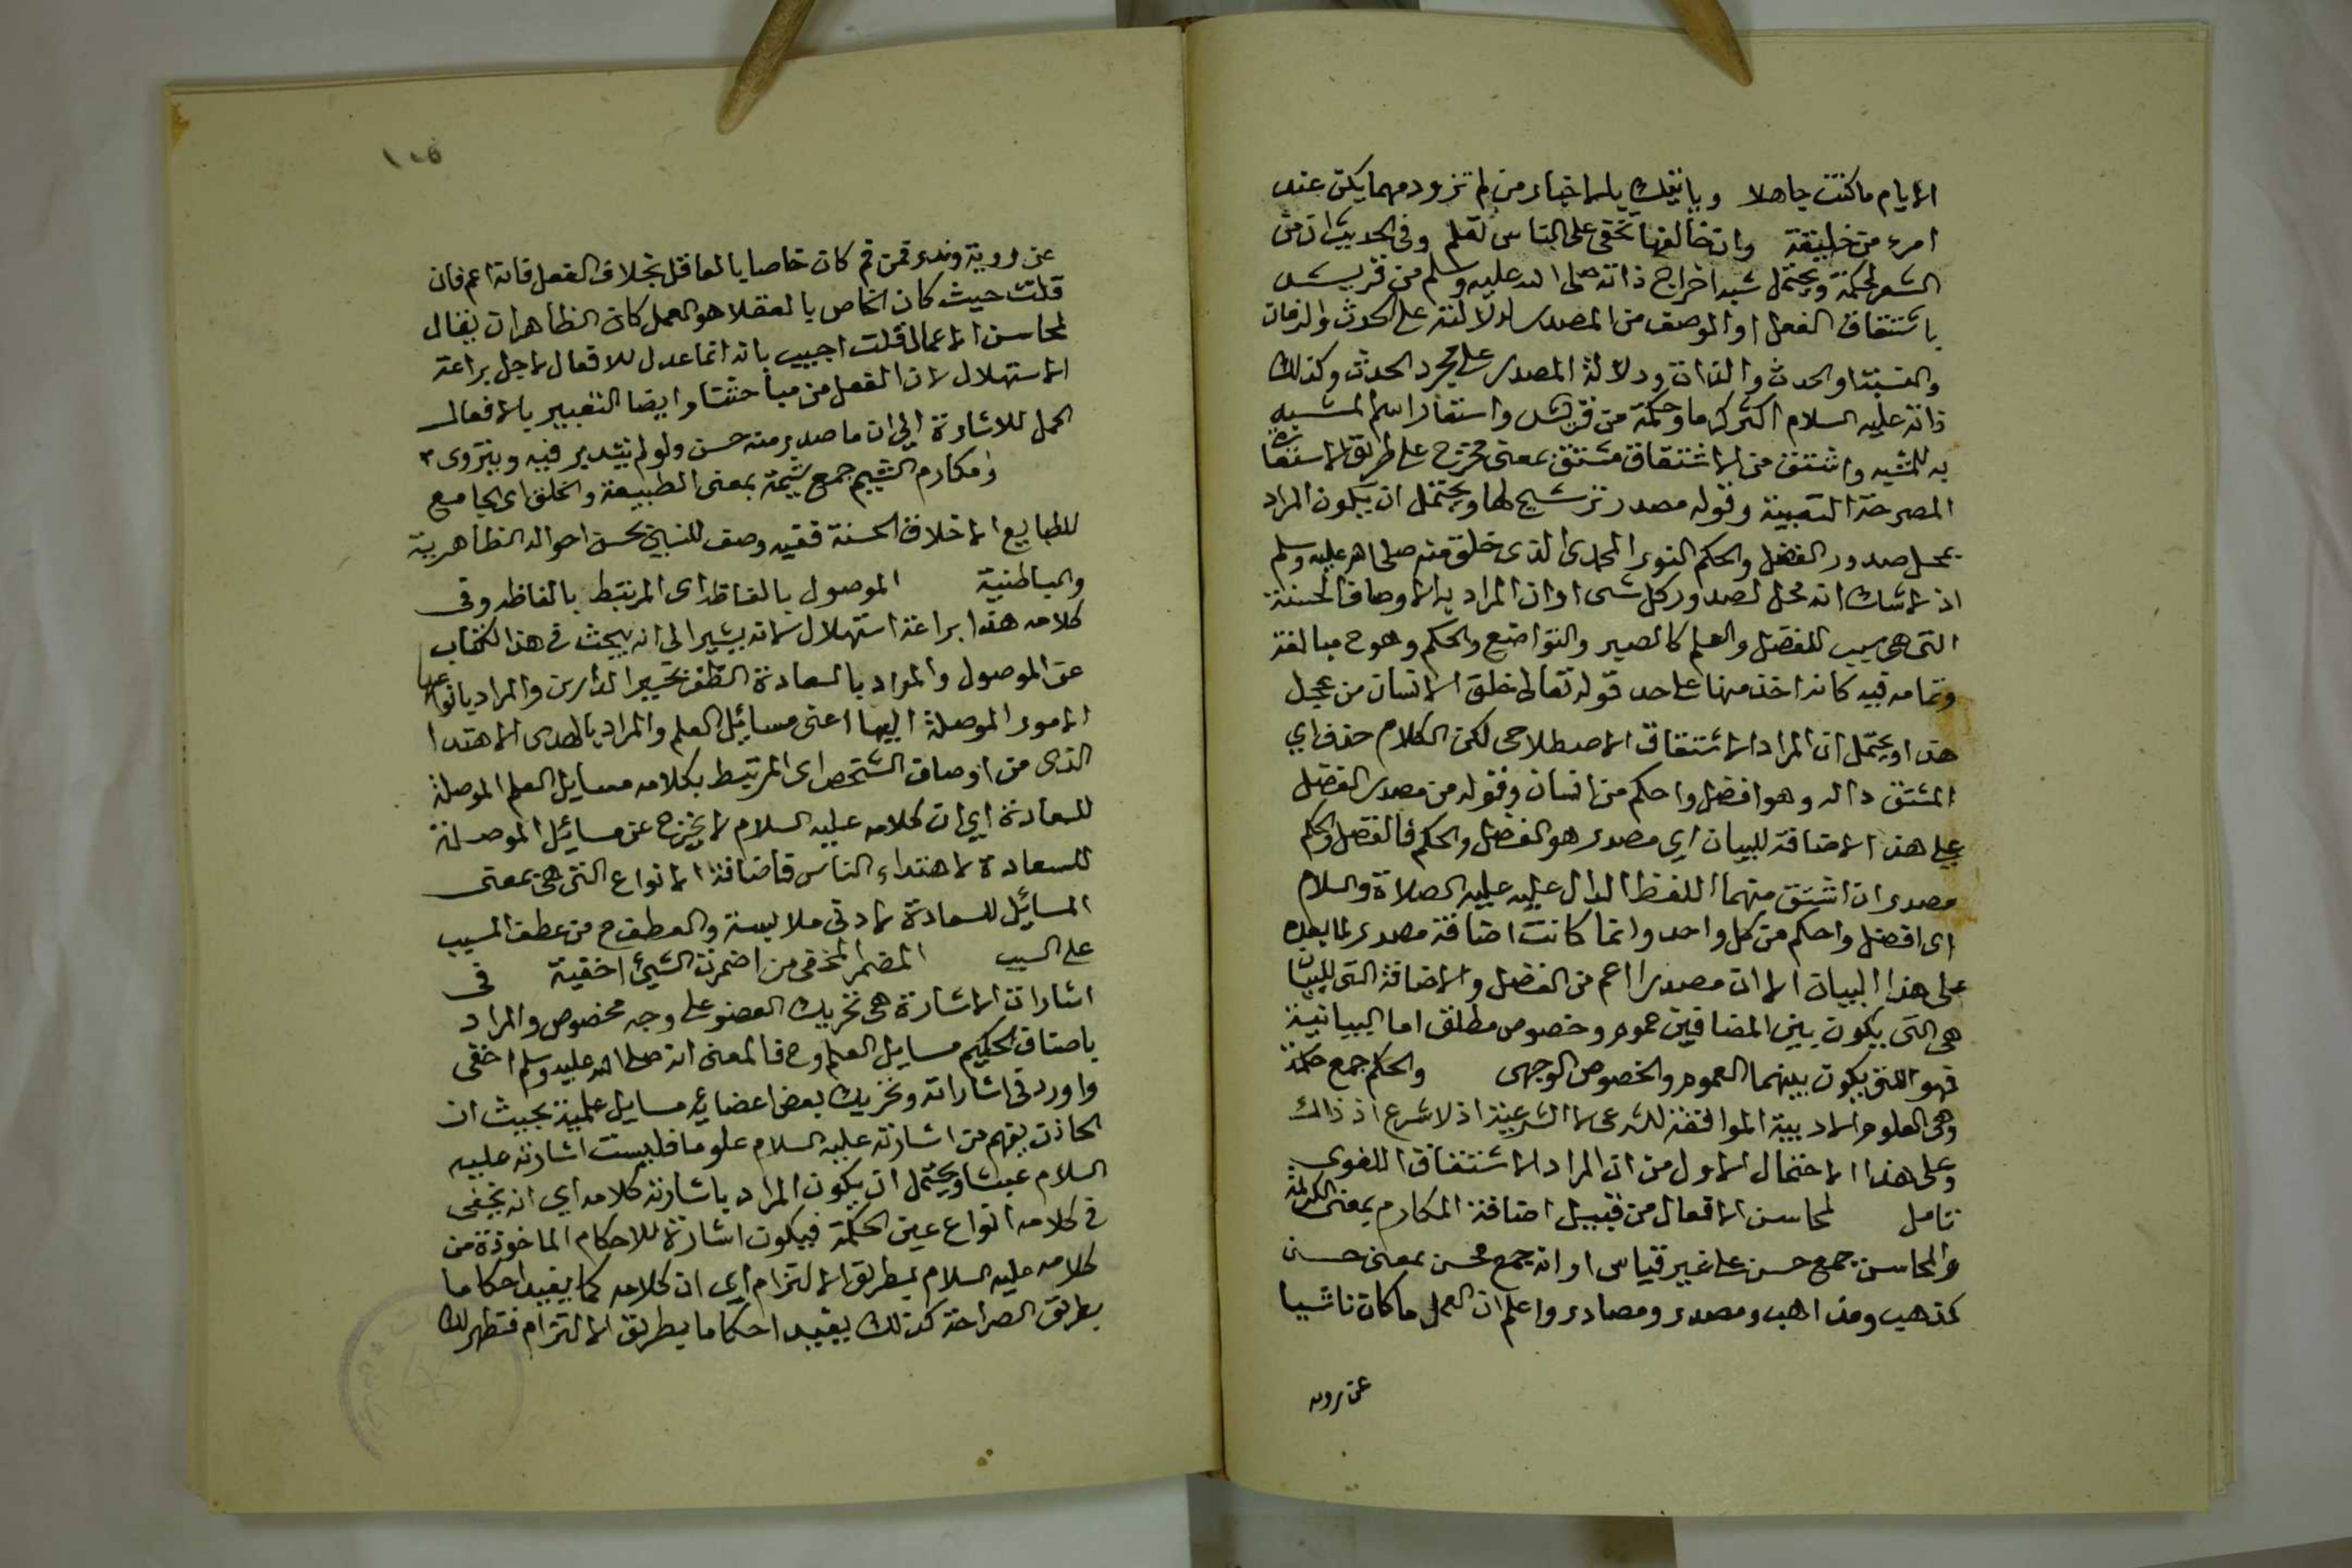 الايام ما كنت جاهلا وياتيك بالاخبار من لم تزود مهما يكن عند
امرء من خليقة وان خالها تخفى على الناس تعلم وفى الحديث ان من
الشعر لحكمة ويحتمل شبه اخراج ذاته صلى الله عليه وسلم من قريش
باشتقاق الفعل او الوصف من المصدر لدلالته على الحدث والزمان
والنسبة او الحدث والذات ودلالة المصدر على مجرد الحدث وكذلك
ذاته عليه السلام اكثر كرما وحكمة من قريش واستعار اسم المشبه
به للمشبه واشتق من الاشتقاق مشتق بمعنى مخرج على طريق الاستعارة
المصرحة التبعية وقوله مصدر ترشيح لها ويحتمل ان يكون المراد
بمحل صدور الفضل والحكم النور المحمدى الذى خلق منه صلى الله عليه وسلم
اذ لاشك انه محل لصدور كل شى او ان المراد به الاوصاف الحسنة
التى هى سبب للفضل والعلم كالصبر والتواضع والحكم وهو ح مبالغة
وتمامه فيه كانه اخذ منها على حد قوله تعالى خلق الانسان من عجل
هذا ويحتمل ان المراد الاشتقاق الاصطلاحى لكن الكلام حذف اي
المشتق داله وهو افضل واحكم من انسان وقوله من مصدر الفضل
على هذا الاضافة للبيان اي مصدر هو الفضل والحكم فالفضل والحكم
مصدران اشتق منهما اللفظ الدال عليه عليه الصلاة والسلام
اى افضل واحكم من كل واحد وانما كانت اضافة مصدر لما بعده
على هذا البيان لان مصدرا اعم من الفضل والاضافة التى للبيان
هى التى يكون بين المضافين عموم وخصوص مطلق اما البيانية
فهو التى يكون بينهما العموم والخصوص الوجهى والحكم جمع حكمة
وهى العلوم الادبية الموافقة للشرع لا الشرعية اذ لا شرع اذ ذاك
وعلى هذا الاحتمال الاول من ان المراد الاشتقاق اللغوى
تامل لمحاسن الافعال من قبيل اضافة المكارم بمعنى الكريمة
والمحاسن جمع حسن على غير قياس او انه جمع محسن بمعنى حسن
كمذهب ومذاهب ومصدر ومصادر واعلم ان العمل ما كان ناشيا
عن روية
عن روية وتدبر فمن ثم كان خاصا بالعاقل بخلاف الفعل فانه اعم فان
قلت حيث كان الخاص بالعقلا هو العمل كان الظاهر ان يقال
لمحاسن الاعمال قلت اجيب بانه انما عدل للافعال لاجل براعة
الاستهلال لان الفعل من مباحثنا وايضا التعبير بالافعال
اكمل للاشارة الى ان ما صدر منه حسن ولو لم يتدبر فيه ويتروى
ومكارم الشيم جمع شيمة بمعنى الطبيعة والخلق اى الجامع
للطبايع الاخلاق الحسنة ففيه وصف للنبى بحسن احواله الظاهرية
والباطنية الموصول بالفاظه اى المرتبط بالفاظه وفى
كلامه هذا براعة استهلال لانه يشير الى انه يبحث فى هذا الكتاب
عن الموصول والمراد بالسعادة الظفر بخير الدارين والمراد بانواعها
الامور الموصلة اليها اعنى مسايل العلم والمراد بالهدى الاهتدا
الذى من اوصاف الشخص اى المرتبط بكلامه مسايل العلم الموصلة
للسعادة اي ان كلامه عليه السلام لا يخرج عن مسائل الموصلة
للسعادة لاهتداء الناس فاضافة الانواع التى هى بمعنى
المسائل للسعادة لادنى ملابسة والعطف ح من عطف المسبب
على السبب المضمر المخفى من اضمرت الشيئ اخفيه فى
اشاراته الاشارة هى تحريك العضو على وجه مخصوص والمراد
باصناف الحكم مسايل العلم وح فالمعنى انه صلى الله عليه وسلم اخفى
واورد فى اشاراته وتحريك بعض اعضائه مسايل علمية بحيث ان
الحاذق يفهم من اشارته عليه السلام علوما فليست اشارته عليه
السلام عبثا ويحتمل ان يكون المراد باشارته كلامه اي انه يخفى
فى كلامه انواع عين الحكمة فيكون اشارة للاحكام الماخوذة من
كلامه عليه السلام بطريق الالتزام اي ان كلامه كما يفيد احكاما
بطريق الصراحة كذلك يفيد احكاما بطريق الالتزام فتظهر لك